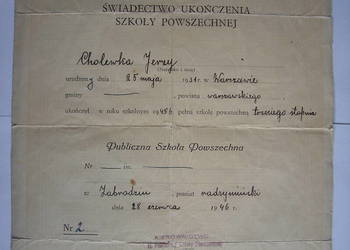 ŚWIADECTWO UKOŃCZENIA
SZKOŁY POWSZECHNEJ
Cholewka Jerzy
(Nazwisko i imię)
urodzony dnia 25 maja 1931 r. w Warszawie
gminy powiatu warszawskiego
ukończył w roku szkolnym 1945/6 pełną szkołę powszechną trzeciego stopnia
Publiczna Szkoła Powszechna
Nr im.
w Zabrodziu, powiat radzymiński
dnia 28 czerwca 1946 r.
Nr 2